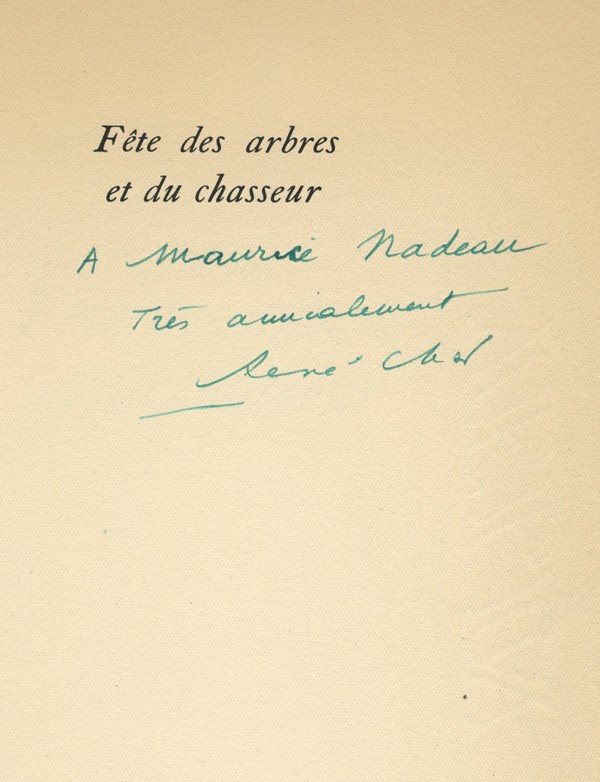 Fête des arbres
et du chasseur
A Maurice Nadeau
Très amicalement
René Char